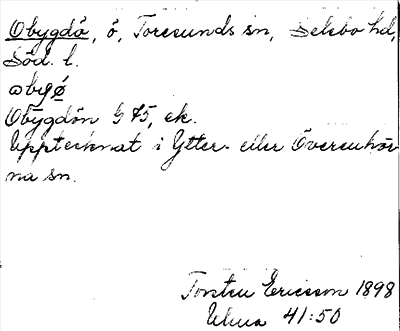 Obygdö, ö, Toresunds sn, Selebo hd,
Söd. l.
obygö
Obygdön G 45, ek.
Upptecknat i Ytter- eller Överenhör-
na sn.
Torsten Ericsson 1898
Ulma 41:50